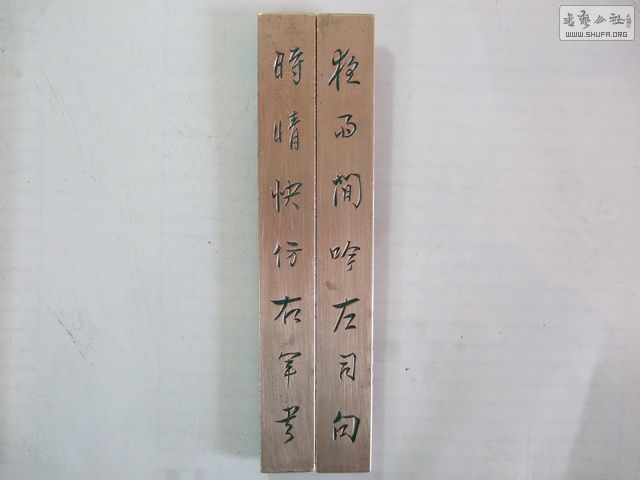 夜雨閒吟左司句
時晴快仿右軍書
书艺公社
WWW.SHUFA.ORG